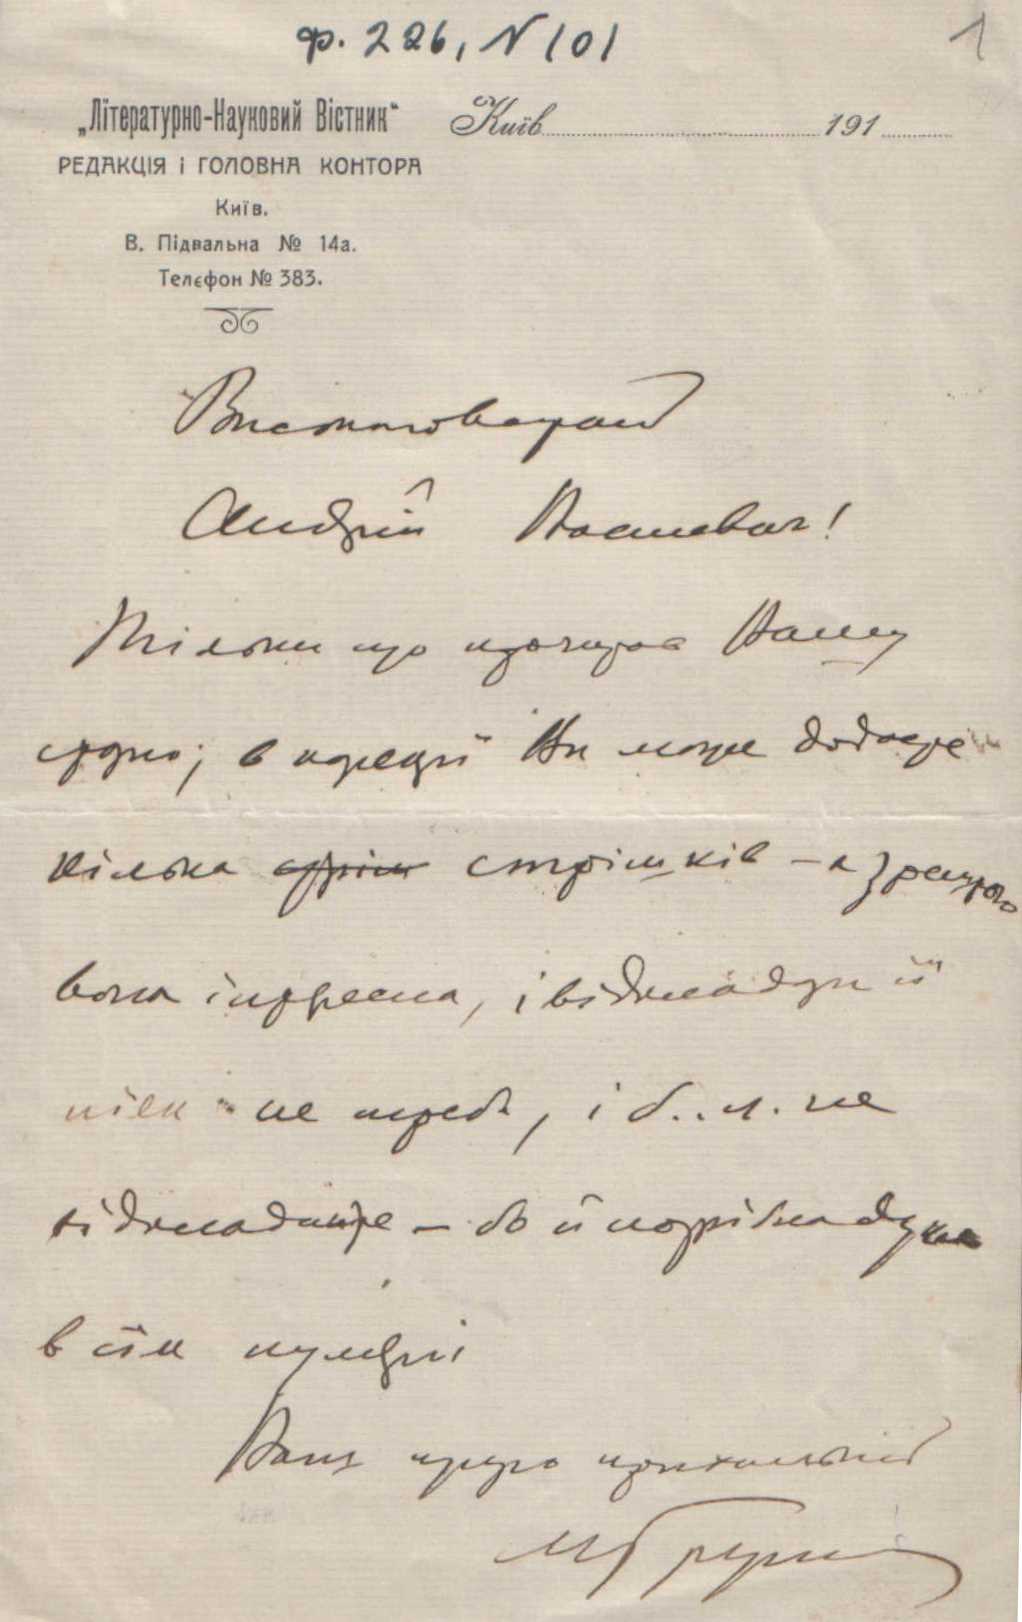 ф. 226, N 101
1
„Лїтературно-Науковий Вістник“
Київ 191
РЕДАКЦІЯ і ГОЛОВНА КОНТОРА
Київ.
В. Підвальна № 14а.
Телєфон № 383.
Високоповажаний
Андрій Василевич!
Тільки що прочитав Вашу
статю; в коректі Ви може додасте
кілька стрічків – а зрештою
вона інтересна, і відкладати її
нїяк не треба, і б. л. не
відкладайте – бо й потрібна дуже
в сїм нумері
Ваш щиро прихильний
М Грушев